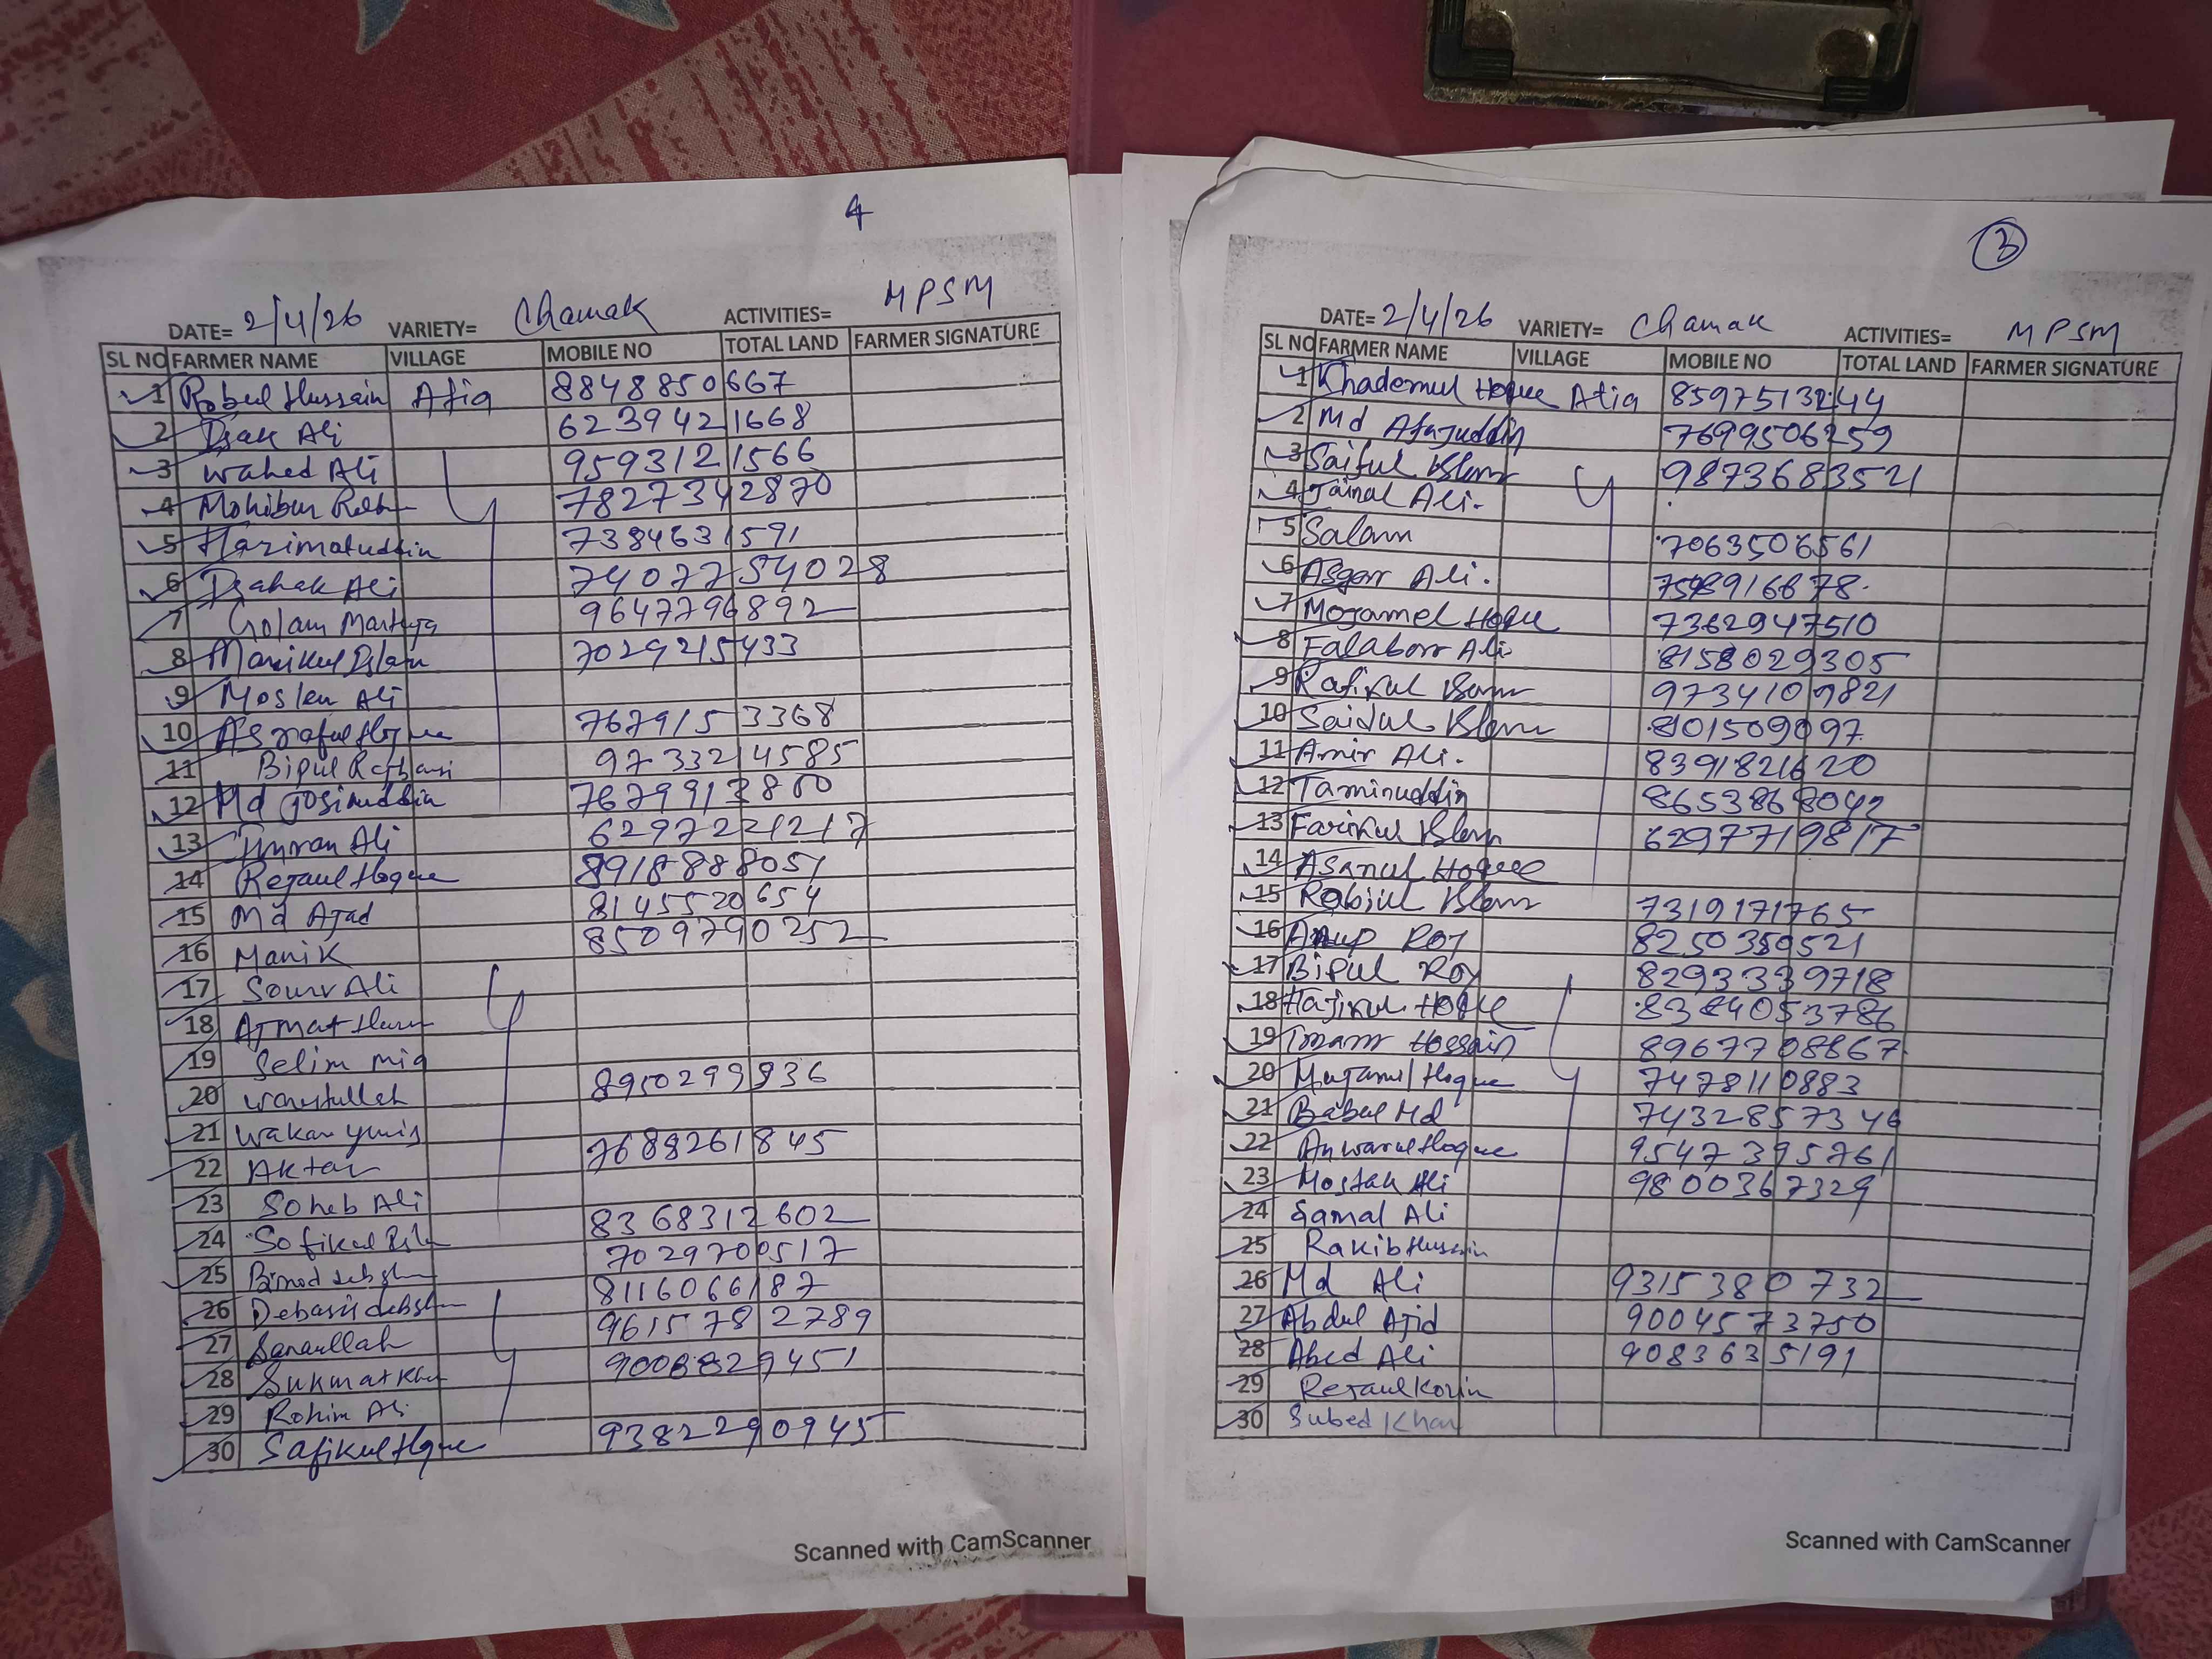 4
DATE= 2/4/26 VARIETY= Chamak ACTIVITIES= MPSM
SL NO FARMER NAME VILLAGE MOBILE NO TOTAL LAND FARMER SIGNATURE
1 Robul Hussain Atia 8848850667
2 Isak Ali 6239421668
3 Wahed Ali 9593121566
4 Mohibur 7827342870
5 Harimatuddin 7384631591
6 Isahak Ali 7407754028
7 Golam Martuja 9647796892
8 Manikul Islam 7029215433
9 Moslem Ali
10 Asraful Hoque 7679153368
11 Bipul Rajbansi 9733214585
12 Md Josimuddin 7679913800
13 Imran Ali 6297221217
14 Rejaul Hoque 8918888051
15 Md Ajad 8145520654
16 Manik 8509790252
17 Sourv Ali
18 Ajmat
19 Selim mia
20 8950299936
21 Wakar yunis
22 Aktar 7689261845
23 Soheb Ali
24 Sofikul 8368312602
25 7029700517
26 Debasis debsh 8116066187
27 Sanaullah 9615782789
28 Sukmat Khan 9008829451
29 Rohim Ali
30 Safikul Hque 9382290945
Scanned with CamScanner
3
DATE= 2/4/26 VARIETY= Chamak ACTIVITIES= MPSM
SL NO FARMER NAME VILLAGE MOBILE NO TOTAL LAND FARMER SIGNATURE
1 Khademul Hoque Atia 8597513244
2 Md Afajuddin 7699506259
3 Saiful Islam 9873683521
4 Jainal Ali.
5 Salam 7063506561
6 Asgar Ali.
7 Mojamel Hoque 7362947510
8 Falabor Ali 8158029305
9 Rafikul Islam 9734109821
10 Saidul Islam 801509097
11 Amir Ali. 8391821620
12 Taminuddin 8653868042
13 Farikul Islam 6297719817
14 Asanul Hoque
15 Rabiul Islam 7319171765
16 Anup Roy 8250350521
17 Bipul Roy 8293339718
18 Hajikul Hoque
19 Imam Hossain 8967708867
20 Mujamil Hoque 7478110883
21 Babul Md 7432857346
22 Anwarul Hoque 9547395761
23 Mostak Ali 9800367329
24 Samal Ali
25 Rakib Hussain
26 Md Ali 9315380732
27 Abdul Ajid 9004573750
28 Abed Ali 9083635191
29 Rejaul Korim
30 Subed Khan
Scanned with CamScanner